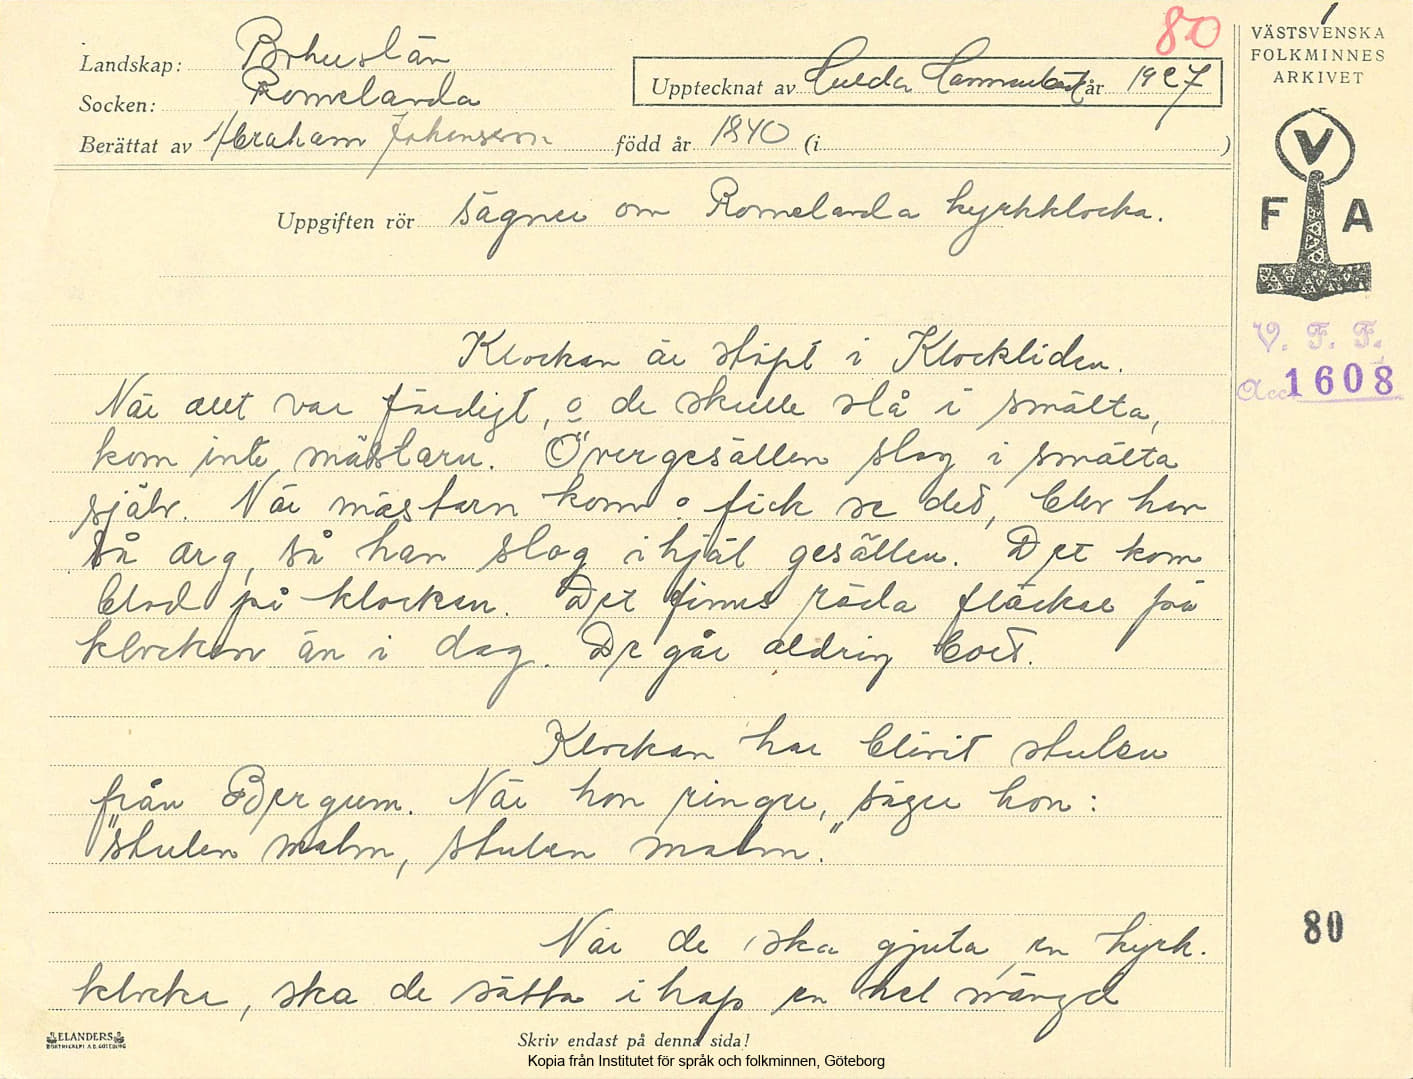 80
VÄSTSVENSKA
FOLKMINNES
ARKIVET
Landskap: Bohuslän
Socken: Romelanda
Upptecknat av Hulda Hammarbäck år 1927
Berättat av Abraham Johansson född år 1840 (i )
V
F A
Uppgiften rör sägner om Romelanda kyrkklocka.
V. F. F.
Acc 1608
Klockan är stöpt i Klockliden.
När allt var färdigt, o de skulle slå i smälta,
kom inte mästarn. Övergesällen slog i smälta
själv. När mästarn kom o fick se det, blev han
så arg, så han slog ihjäl gesällen. Det kom
blod på klockan. Det finns röda fläckar på
klockan än i dag. De går aldrig bort.
Klockan har blivit stulen
från Bergum. När hon ringer, säger hon:
"stulen malm, stulen malm."
80
När de ska gjuta en kyrk-
klocka, ska de sätta ihop en hel mängd
ELANDERS
BOKTRYCKERI A.B. GÖTEBORG
Skriv endast på denna sida!
Kopia från Institutet för språk och folkminnen, Göteborg